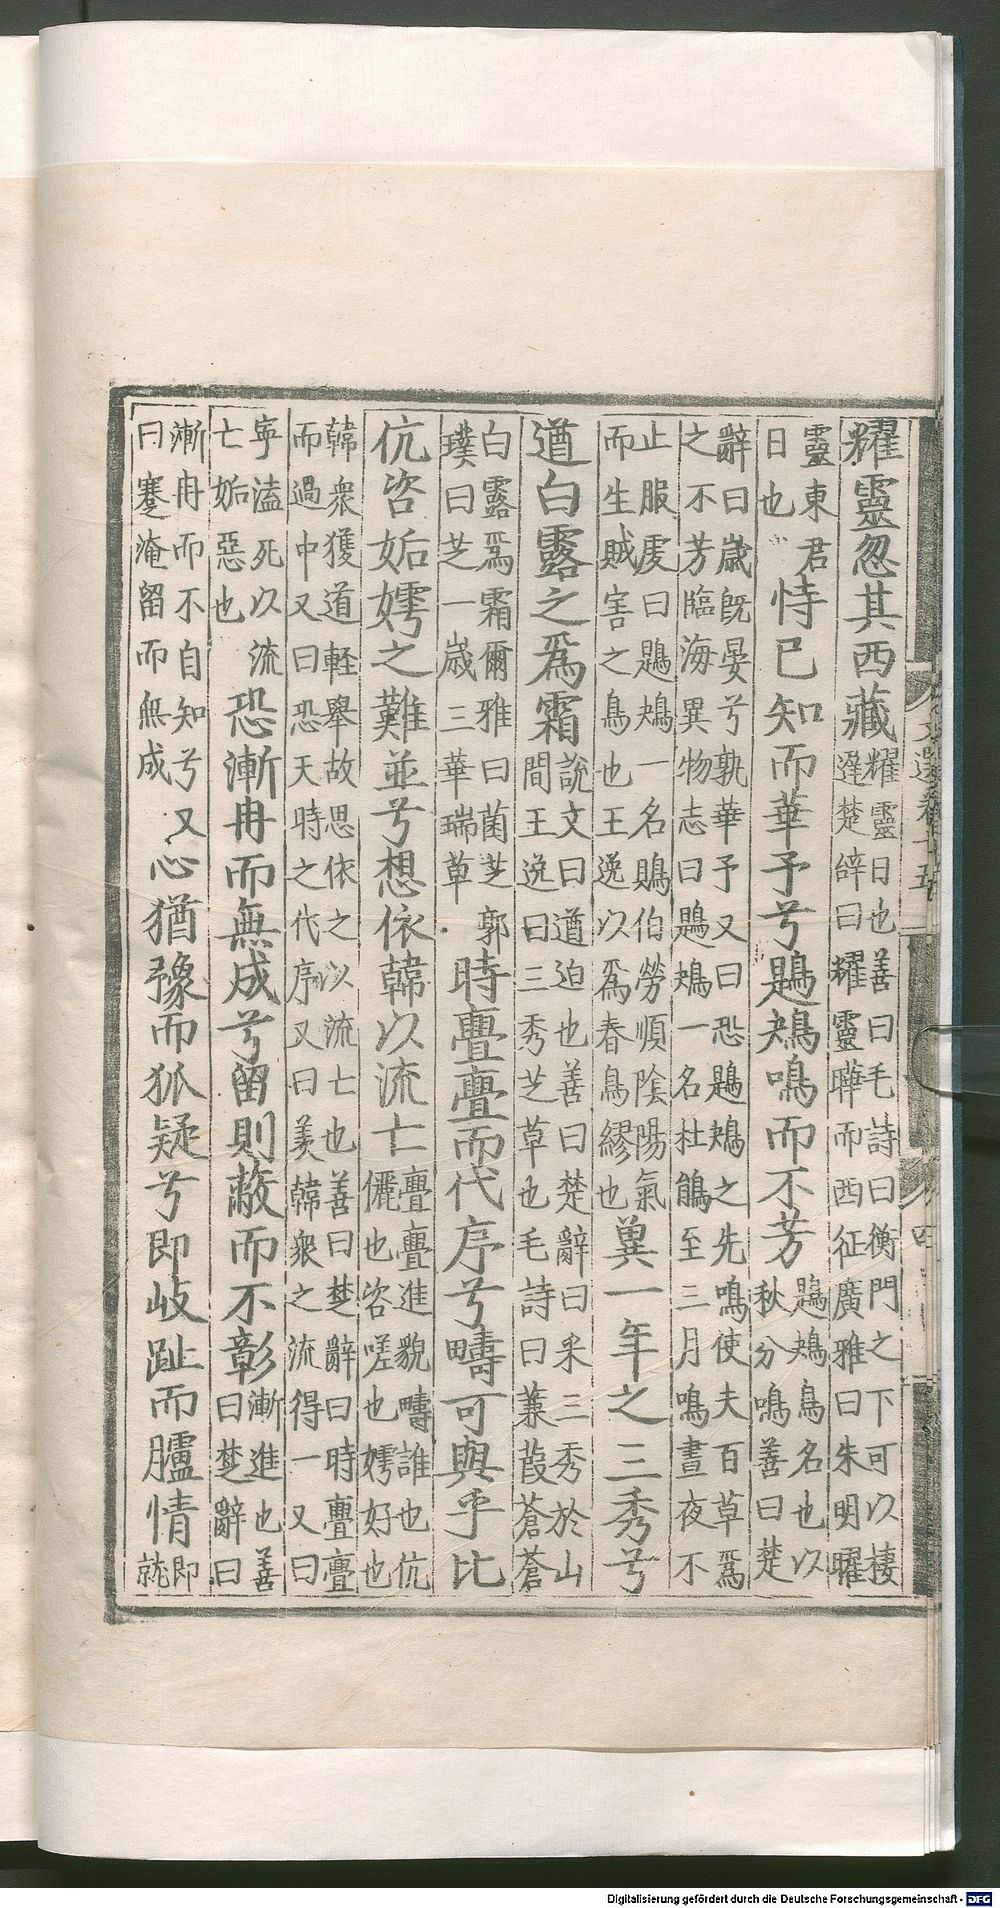 耀靈忽其西藏耀靈日也善曰毛詩曰衡門之下可以棲
遲楚辭曰耀靈曄而西征廣雅曰朱明曜
靈東君
日也恃已知而華予兮鶗鴂鳴而不芳鶗鴂鳥名也以
秋分鳴善曰楚
辭曰歲旣晏兮孰華予又曰恐鶗鴂之先鳴使夫百草爲
之不芳臨海異物志曰鶗鴂一名杜鵑至三月鳴晝夜不
止服虔曰鶗鴂一名鵙伯勞順隂陽氣
而生賊害之鳥也王逸以爲春鳥繆也冀一年之三秀兮
遒白露之爲霜說文曰遒迫也善曰楚辭曰采三秀於山
間王逸曰三秀芝草也毛詩曰蒹葭蒼蒼
白露爲霜爾雅曰菌芝郭
璞曰芝一歲三華瑞草時亹亹而代序兮疇可與乎比
伉咨姤嫮之難並兮想依韓以流亡亹亹進貌疇誰也伉
儷也咨嗟也嫮好也
韓衆獲道輕舉故思依之以流亡也善曰楚辭曰時亹亹
而過中又曰恐天時之代序又曰羨韓衆之流得一又曰
寧溘死以流
亡姤惡也恐漸冉而無成兮留則蔽而不彰漸進也善
曰楚辭曰
漸冉而不自知兮又
曰蹇淹留而無成心猶豫而狐疑兮即岐趾而臚情即
就
四
Digitalisierung gefördert durch die Deutsche Forschungsgemeinschaft - DFG